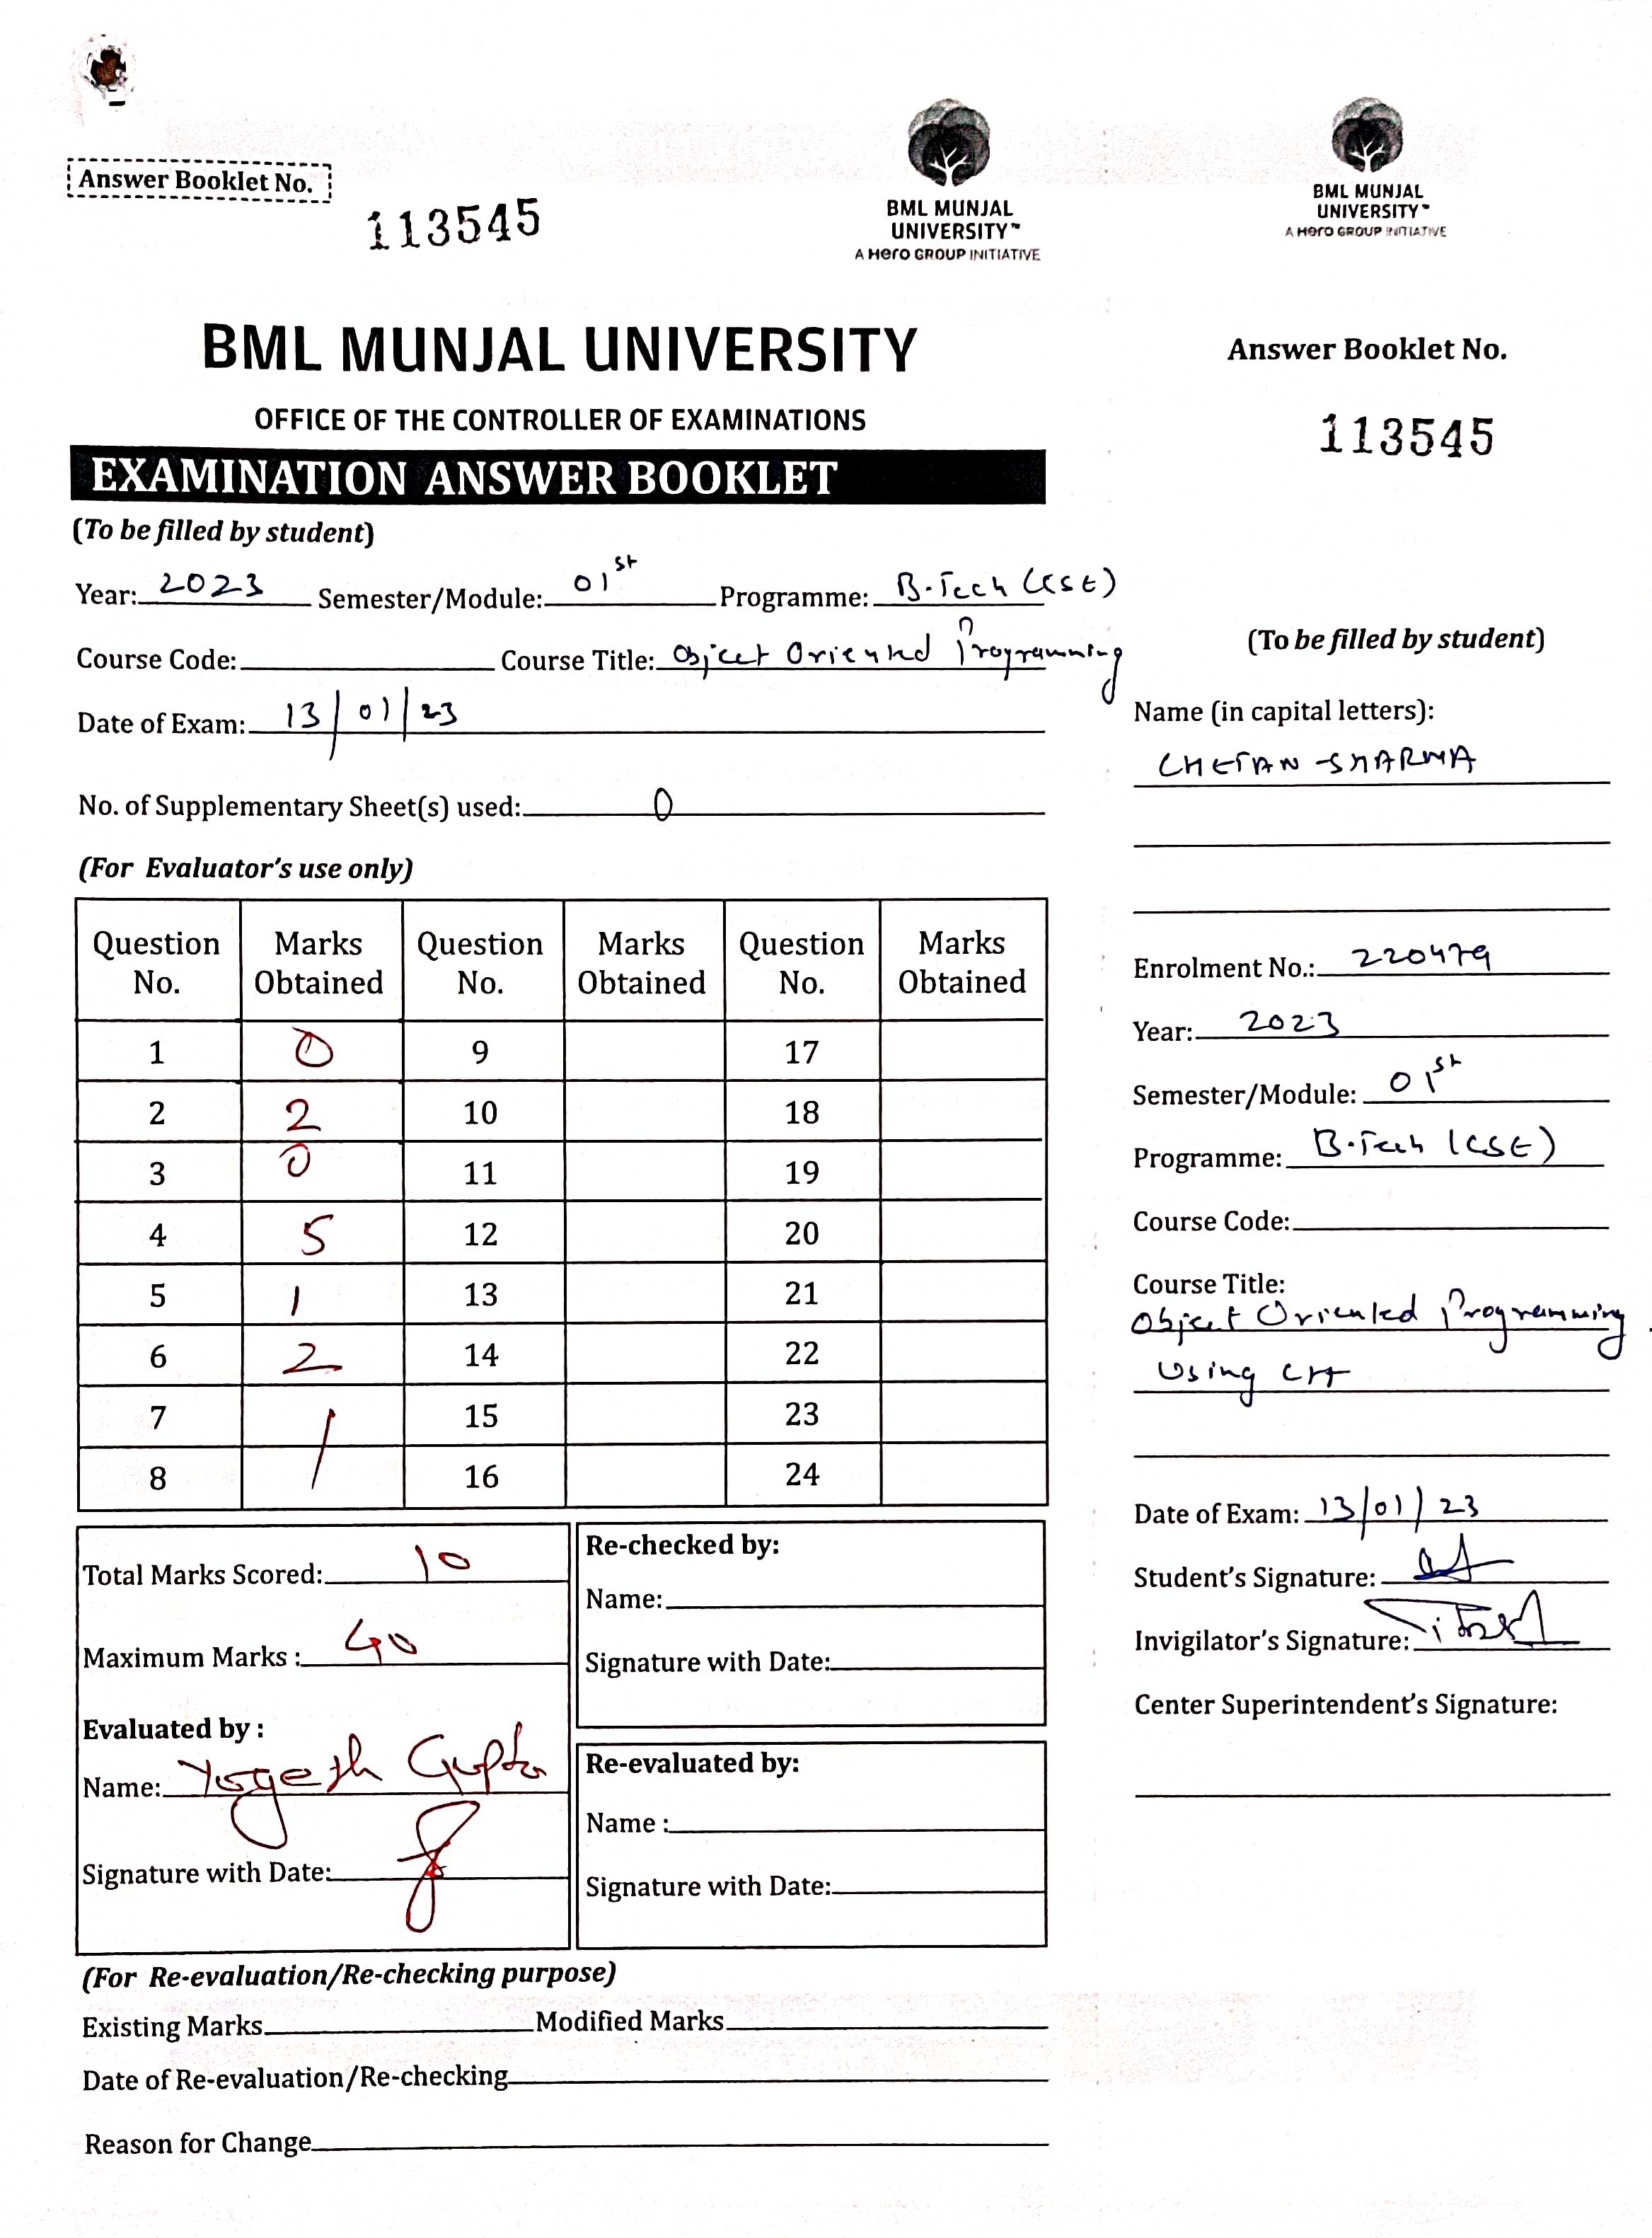 Answer Booklet No.
113545
BML MUNJAL
UNIVERSITY™
A Hero GROUP INITIATIVE
BML MUNJAL
UNIVERSITY™
A Hero GROUP INITIATIVE
BML MUNJAL UNIVERSITY
OFFICE OF THE CONTROLLER OF EXAMINATIONS
EXAMINATION ANSWER BOOKLET
(To be filled by student)
Year: 2023 Semester/Module: 01st Programme: B.Tech (CSE)
Course Code: Course Title: Object Oriented Programming
Date of Exam: 13/01/23
No. of Supplementary Sheet(s) used: 0
(For Evaluator's use only)
Question No. Marks Obtained Question No. Marks Obtained Question No. Marks Obtained
1 0 9 17
2 2 10 18
3 0 11 19
4 5 12 20
5 1 13 21
6 2 14 22
7 15 23
8 16 24
Total Marks Scored: 10
Maximum Marks : 40
Evaluated by :
Name: Yogesh Gupta
Signature with Date:
Re-checked by:
Name:
Signature with Date:
Re-evaluated by:
Name :
Signature with Date:
(For Re-evaluation/Re-checking purpose)
Existing Marks Modified Marks
Date of Re-evaluation/Re-checking
Reason for Change
Answer Booklet No.
113545
(To be filled by student)
Name (in capital letters):
CHETAN SHARMA
Enrolment No.: 220479
Year: 2023
Semester/Module: 01st
Programme: B.Tech (CSE)
Course Code:
Course Title:
Object Oriented Programming
Using C++
Date of Exam: 13/01/23
Student's Signature:
Invigilator's Signature:
Center Superintendent's Signature: